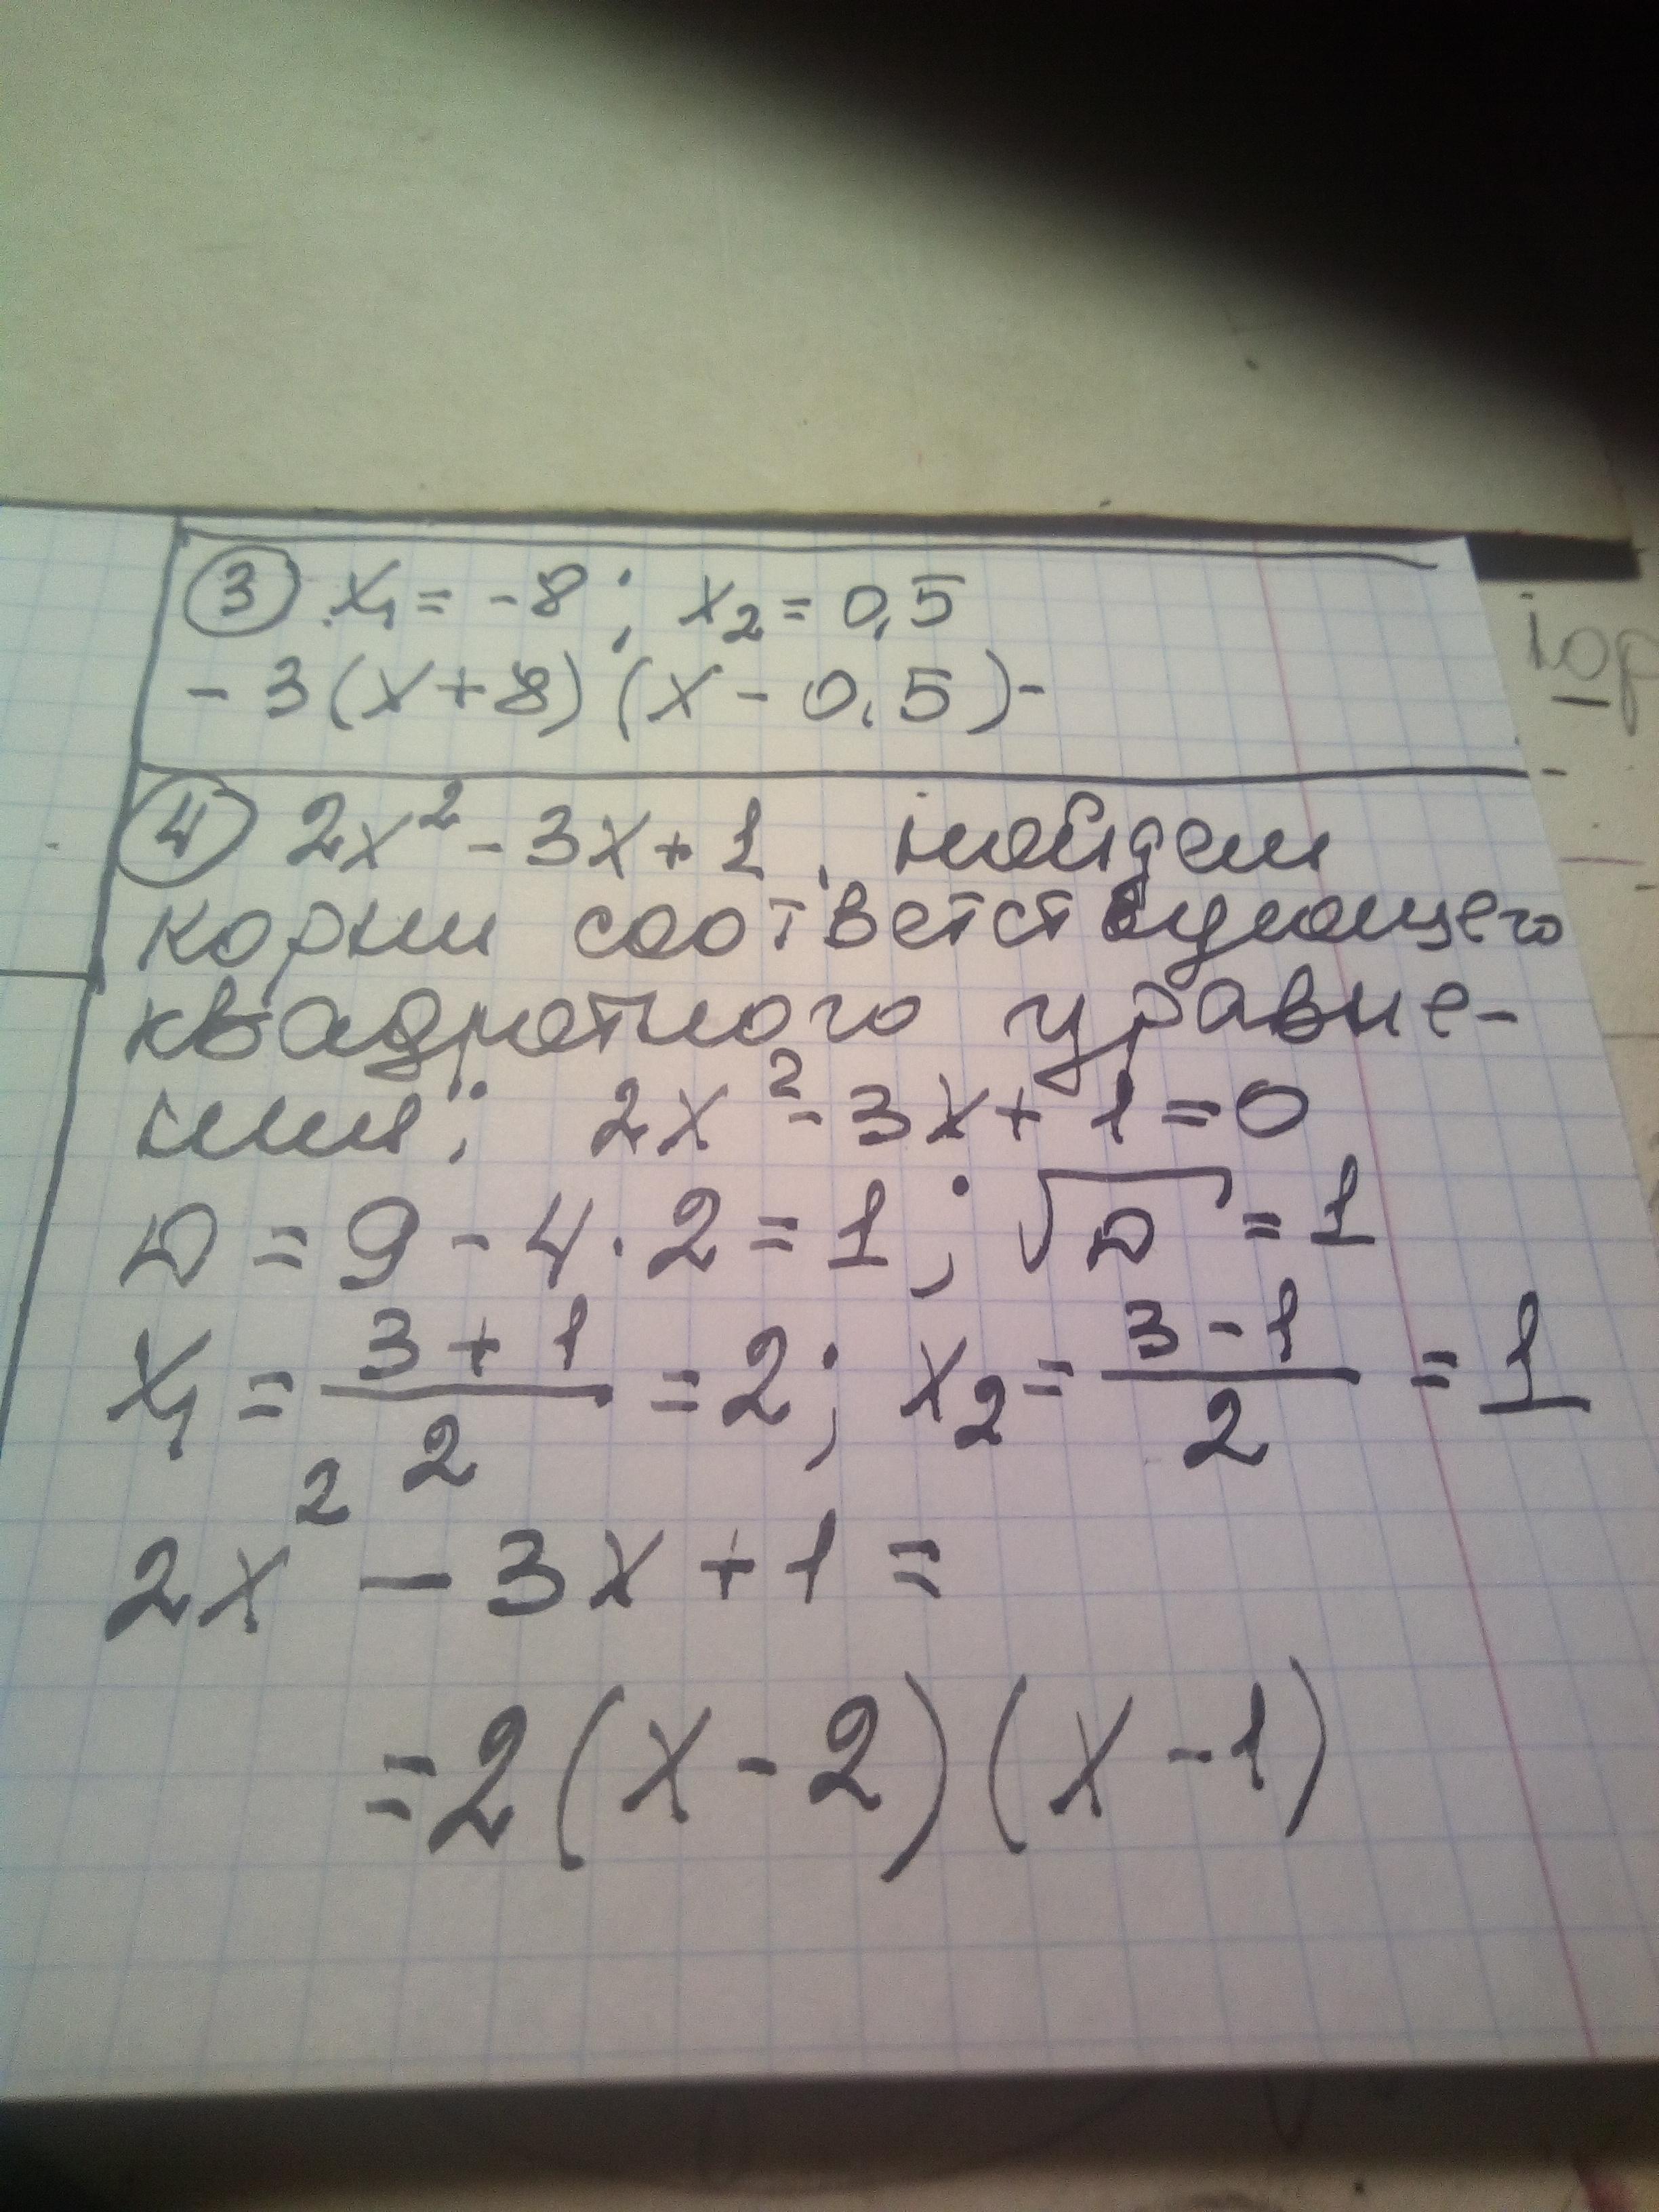 ③ x₁ = -8; x₂ = 0,5
- 3(x+8)(x - 0,5)-
④ 2x² - 3x + 1. найдем
корни соответствующего
квадратного уравне-
ния: 2x² - 3x + 1 = 0
D = 9 - 4 · 2 = 1; √D = 1
x₁ = (3 + 1)/2 = 2; x₂ = (3 - 1)/2 = 1
2x² - 3x + 1 =
= 2(x - 2)(x - 1)